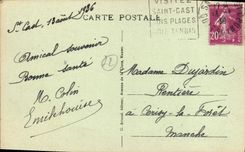 St Cast, 13 août 1936
CARTE POSTALE
VISITEZ
SAINT-CAST
SES PLAGES
20
Amical Souvenir
Bonne Santé
M. Colin
22
Madame Dujardin
Rentière
à Cerisy-la-Forêt
Manche